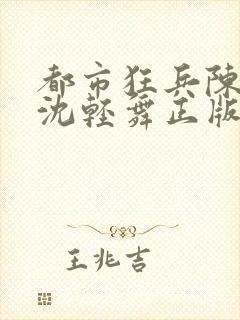 都市狂兵陳
沈輕舞正版
王兆吉